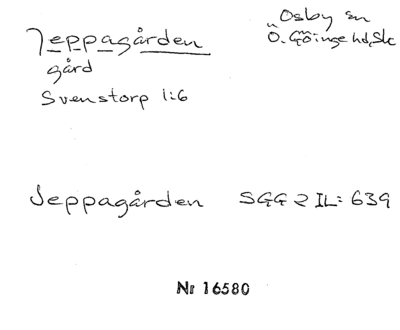 Jeppagården
Osby sn
Ö. Göinge hd, Sk
gård
Svenstorp 1:6
Jeppagården SGG 2 IL: 639
Nr 16580